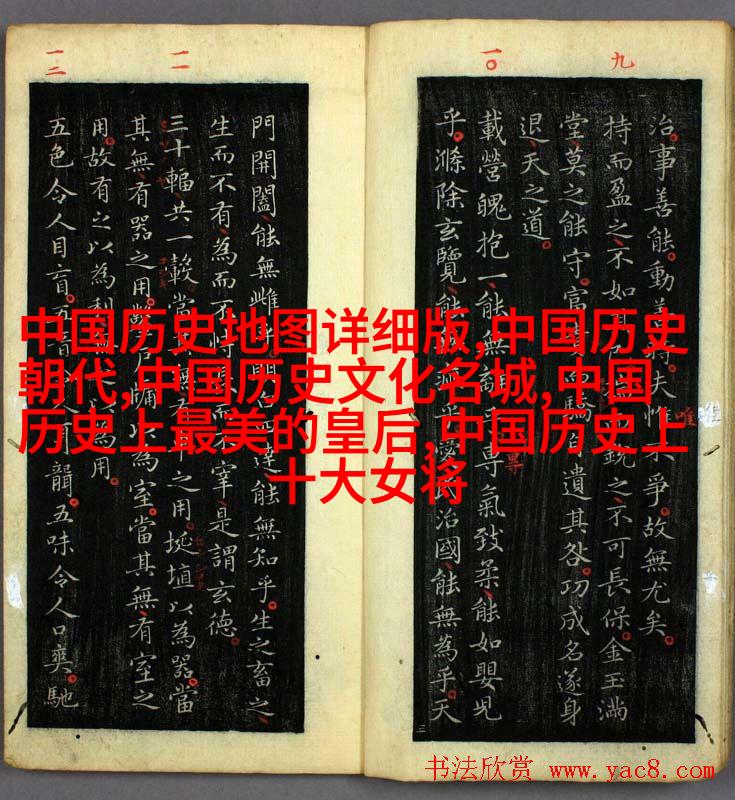 中国历史地图详细版,中国历史
朝代,中国历史文化名城,中国
历史上最美的皇后,中国历史上
十大女将
九
一〇
一一
一二
治。事善能。動善時。夫惟不爭。故無尤矣。
持而盈之、不如其銳之、不可長保。金玉滿
堂、莫之能守。富驕自遺其咎。功成名遂身
退、天之道。
載營魄抱一、能無離專氣致柔、能如嬰兒
乎。滌除玄覽、能無疵乎。愛治國、能無為乎。天
門開闔、能無雌乎。達、能無知乎。生之畜之、
生而不有、為而不恃宰、是謂玄德。
三十輻、共一轂、當其無有之用。埏埴以為器、當
其無、有器之用。鑿戶牖以為室。當其無、有室之
用。故有之以為利為用。
五色令人目盲。五音耳聾。五味令人口爽。馳
唯
书法欣赏 www.yac8.com